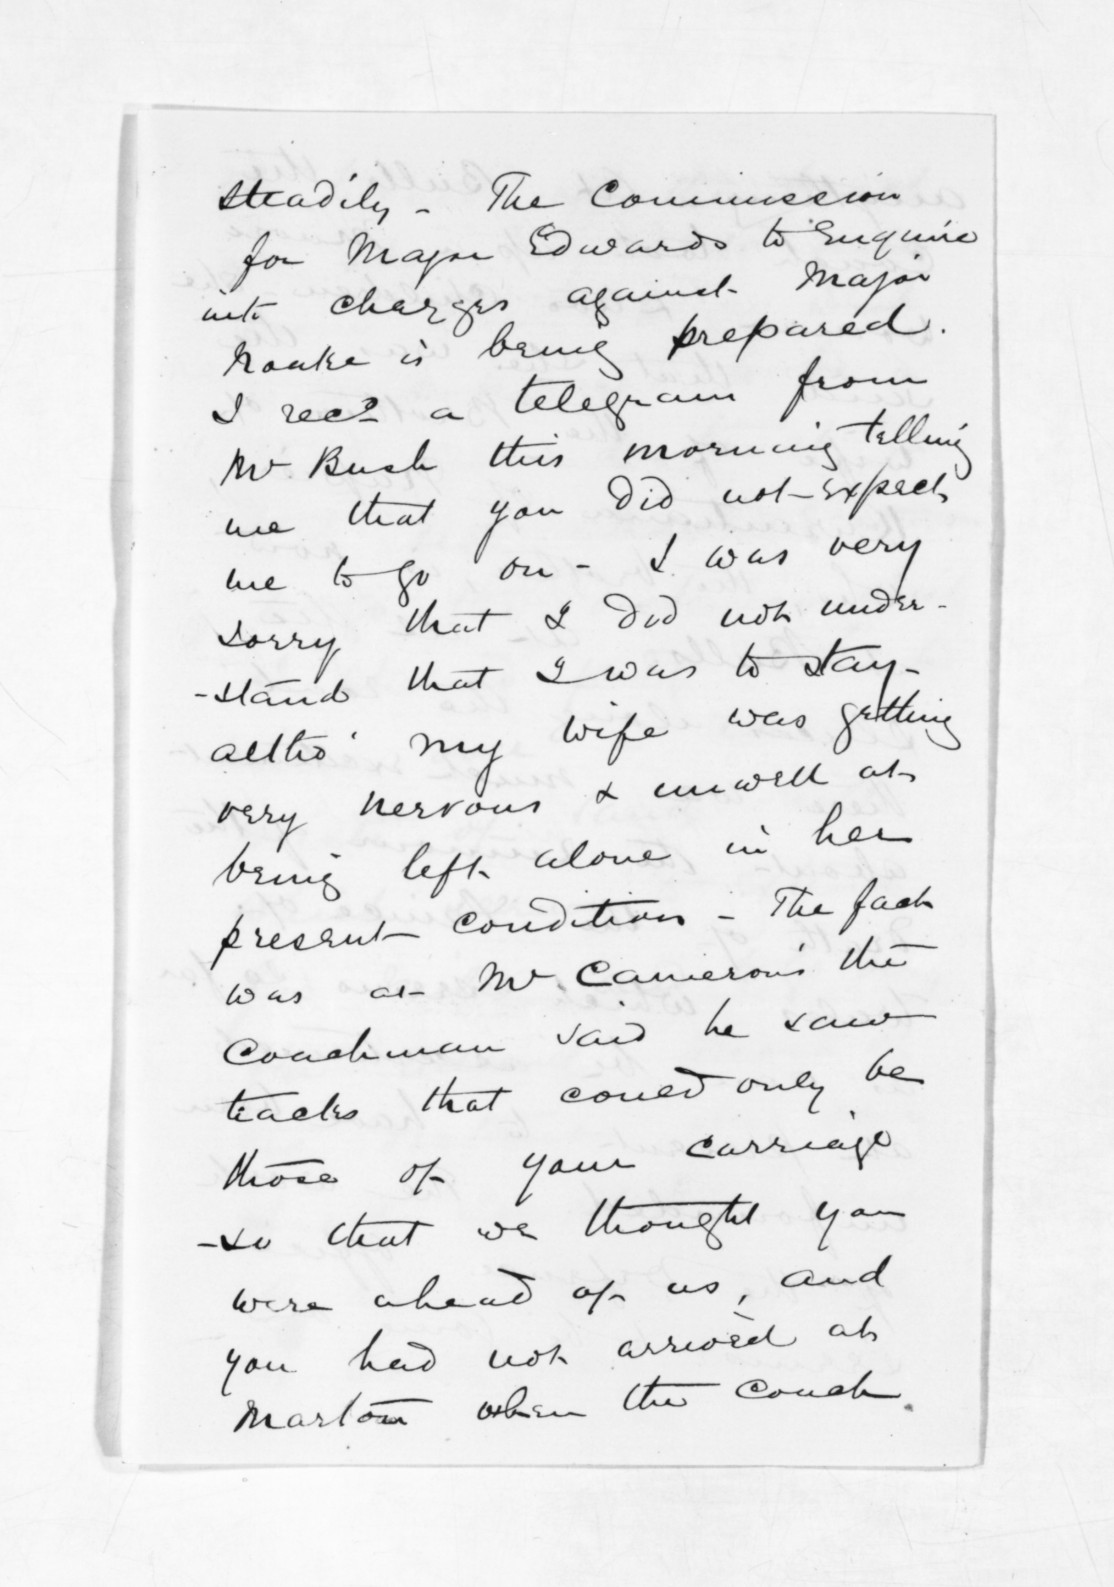 steadily - The Commission
for Major Edwards to Enquire
into charges against Major
Noake is being prepared.
I recd a telegram from
Mr Bush this morning telling
me that you did not expect
me to go on - I was very
sorry that I did not under-
-stand that I was to stay -
altho' my wife was getting
very nervous & unwell at
being left alone in her
present condition - The fact
was at Mr Cameron's the
Coachman said he saw
tracks that could only be
those of your carriage
- so that we thought you
were ahead of us, and
you had not arrived at
Marton when the coach